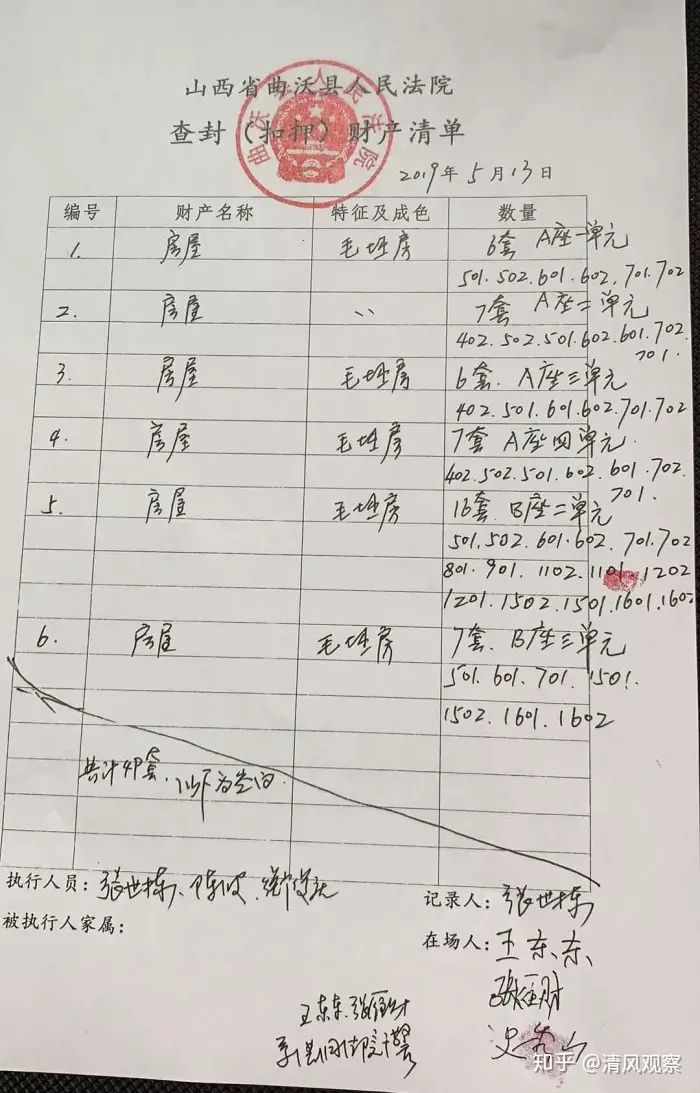 山西省曲沃县人民法院
查封（扣押）财产清单
曲沃县人民法院
2019年5月13日
编号 财产名称 特征及成色 数量
1. 房屋 毛坯房 6套 A座一单元
501.502.601.602.701.702
2. 房屋 〃 7套 A座二单元
402.502.501.602.601.702.
701.
3. 房屋 毛坯房 6套.A座三单元
402.501.601.602.701.702
4. 房屋 毛坯房 7套 A座四单元.
402.502.501.602.601.702.
701.
5. 房屋 毛坯房 16套.B座二单元
501.502.601.602.701.702
801.901.1102.1101.1202
1201.1502.1501.1601.1602
6. 房屋 毛坯房 7套.B座三单元
501.601.701.1501.
1502.1601.1602
共计49套.以下为空白.
执行人员：张世栋、
记录人：张世栋
被执行人家属：
在场人：王东东、
王东东.
知乎 @清风观察